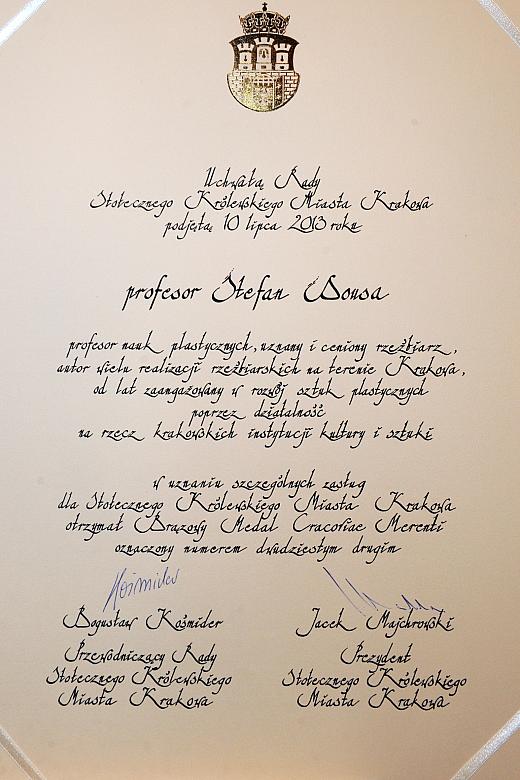 Uchwałą Rady
Stołecznego Królewskiego Miasta Krakowa
podjętą 10 lipca 2013 roku
profesor Stefan Dousa
profesor nauk plastycznych, uznany i ceniony rzeźbiarz,
autor wielu realizacji rzeźbiarskich na terenie Krakowa,
od lat zaangażowany w rozwój sztuk plastycznych
poprzez działalność
na rzecz krakowskich instytucji kultury i sztuki
w uznaniu szczególnych zasług
dla Stołecznego Królewskiego Miasta Krakowa
otrzymał Brązowy Medal Cracoviae Merenti
oznaczony numerem dwudziestym drugim
Kośmider
Bogusław Kośmider
Przewodniczący Rady
Stołecznego Królewskiego
Miasta Krakowa
Jacek Majchrowski
Prezydent
Stołecznego Królewskiego
Miasta Krakowa